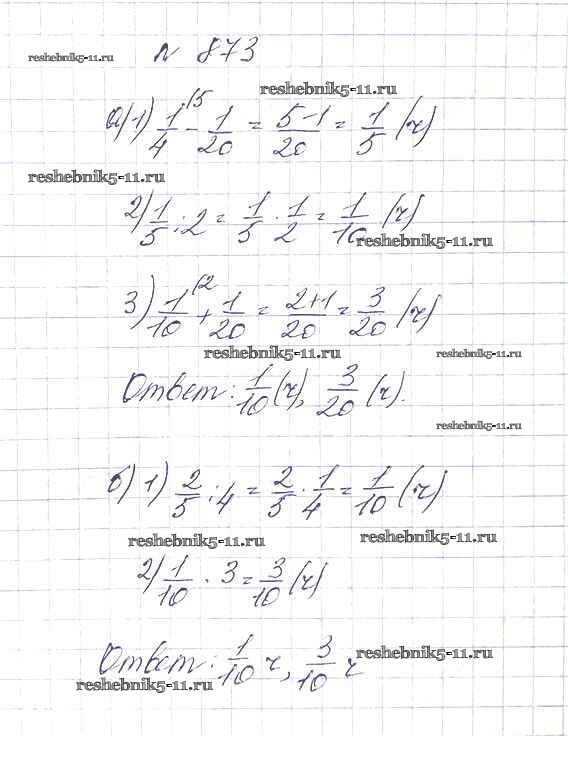 reshebnik5-11.ru № 873
reshebnik5-11.ru
а) 1) 1/4 \5 - 1/20 = 5-1/20 = 1/5 (ч)
reshebnik5-11.ru
2) 1/5 : 2 = 1/5 · 1/2 = 1/10 (ч)
reshebnik5-11.ru
3) 1/10 \2 + 1/20 = 2+1/20 = 3/20 (ч)
reshebnik5-11.ru reshebnik5-11.ru
Ответ: 1/10 (ч), 3/20 (ч).
reshebnik5-11.ru
б) 1) 2/5 : 4 = 2/5 · 1/4 = 1/10 (ч)
reshebnik5-11.ru reshebnik5-11.ru
2) 1/10 · 3 = 3/10 (ч)
Ответ: 1/10 ч, 3/10 ч
reshebnik5-11.ru
reshebnik5-11.ru